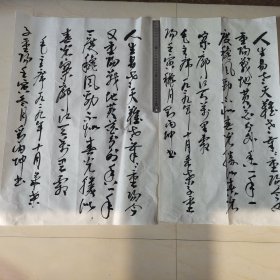 人生易老天难老岁岁重阳今又
重阳战地黄花分外香一年一
度秋风劲不似春光胜似春光
寥廓江天万里霜
毛主席一九二九年十月采桑子重
阳壬寅 月 丙坤书
人生易老天难老岁岁重阳今
又重阳战地黄花分外香一年
一度秋风劲不似春光胜似
春光寥廓江天万里霜
毛主席一九二九年十月采桑
子重阳壬寅 月 丙坤书